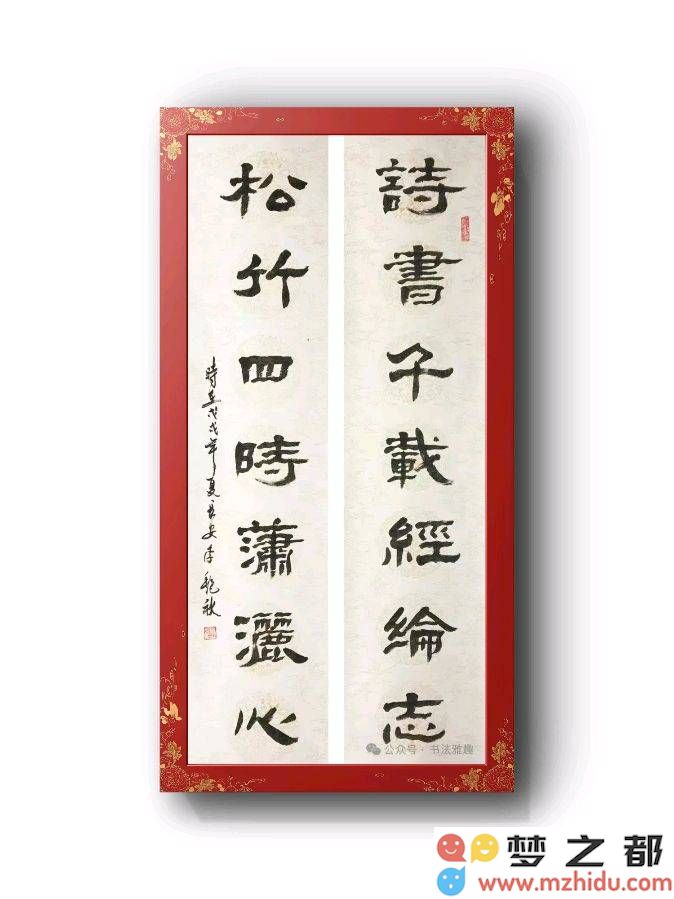 詩書千載經綸志
松竹四時蕭灑心
時在戊戌年夏長安李秋
公众号·书法雅趣
梦之都
www.mzhidu.com